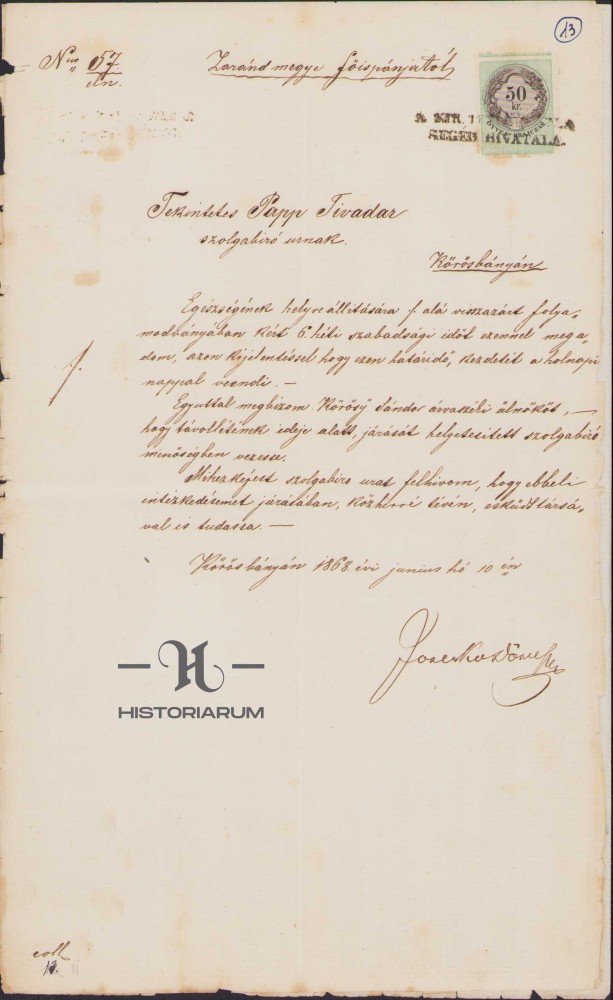 13
Nus 57
eln.
Zaránd megye főispánjától
50
kr.
A KIR.
SEGÉD HIVATALA.
Tekintetes Papp Tivadar
szolgabiró urnak.
Körösbányán
Egészségének helyre állitására ƒ. alá visszazárt folya„
modványában kért 6. héti szabadsági időt ezennel meg a„
dom, azon kijelentéssel hogy ezen határidő, kezdetét a holnapi
nappal veendi. —
Egyuttal megbizom Körösÿ Sándor árvaszéki ülnököt, —
hogy távollétének ideje alatt, járását helyetesitett szolgabiró
minőségben vezesse.
Mihezképest szolgabiro urat felhivom, hogy ebbeli
intézkedésemet járásában, közhirré tévén, esküdttársá„
val is tudassa. —
Körösbányán 1868 évi junius hó 10 én
H
HISTORIARUM
coll
13.